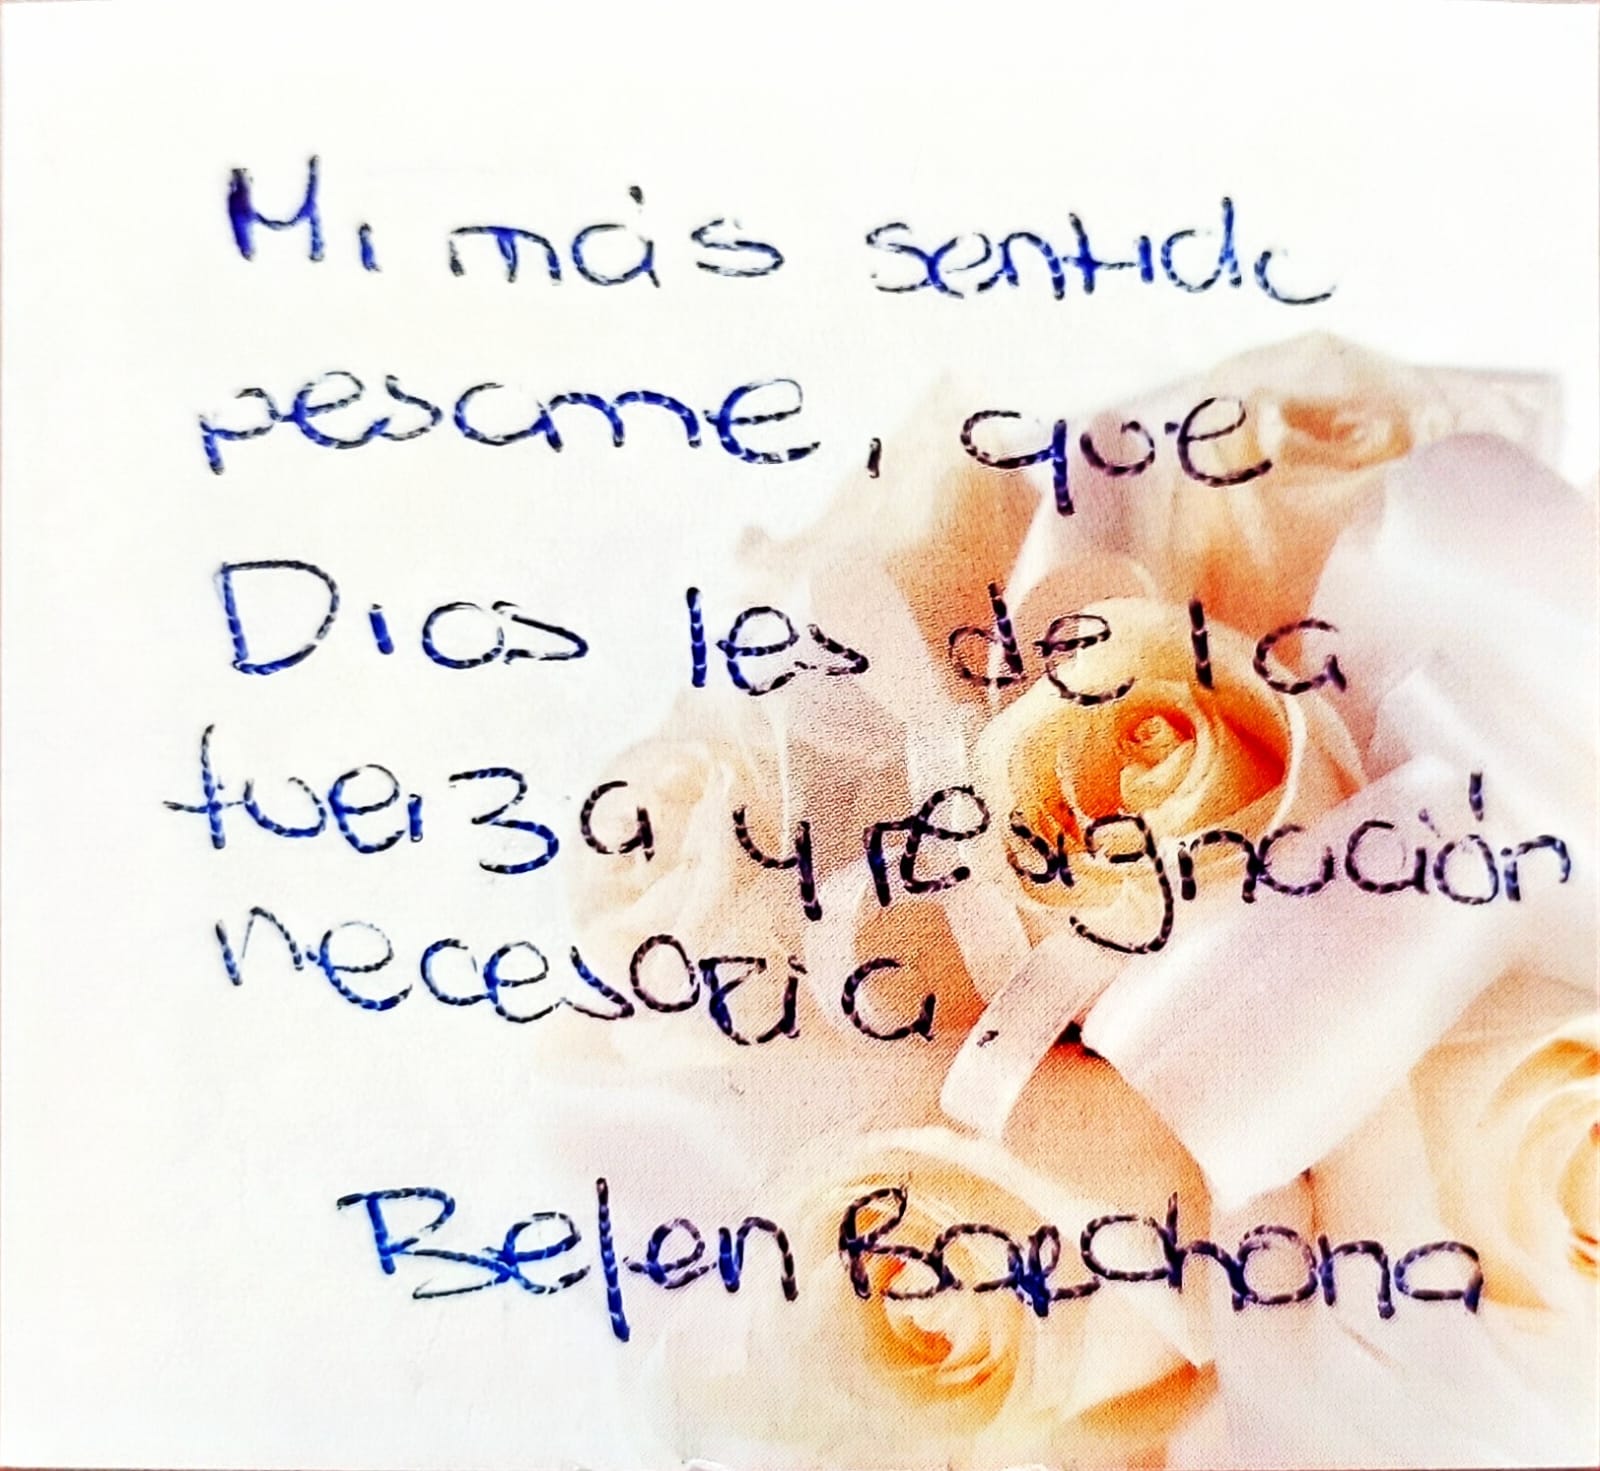 Mi más sentido
pesame, que
Dios les de la
fuerza y resignación
necesaria.
Belen Barchona